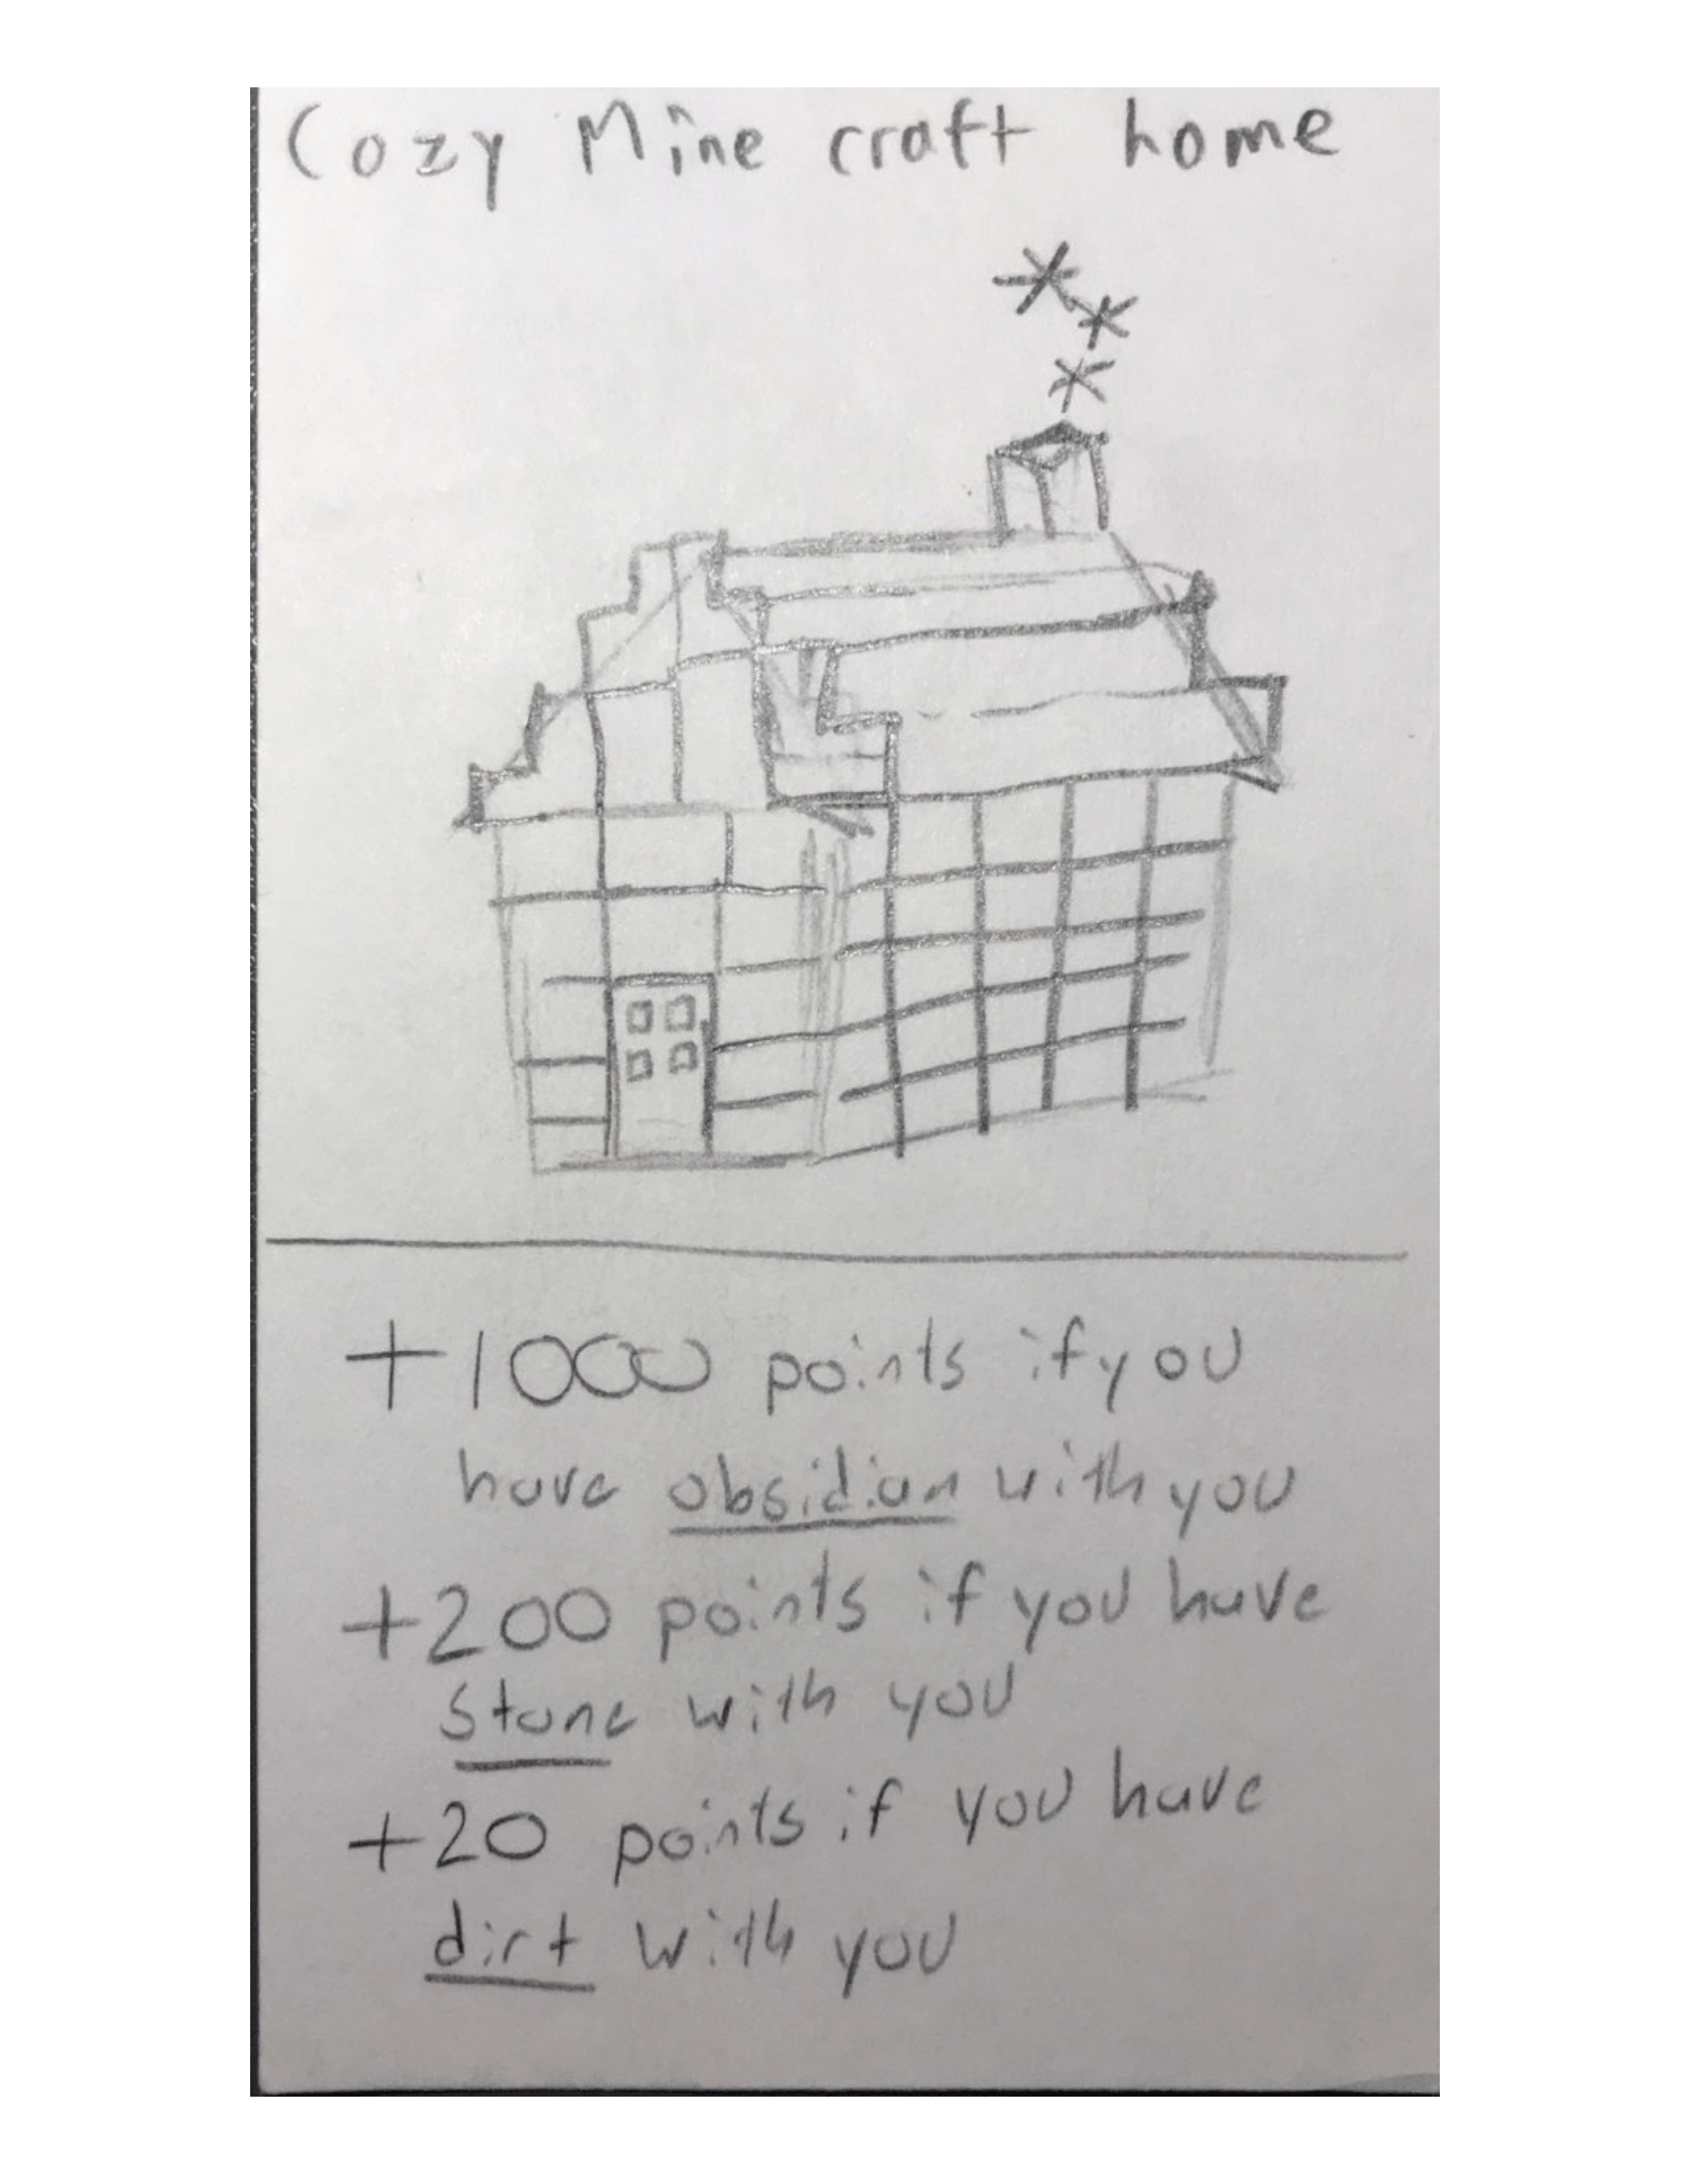 Cozy Mine craft home
+1000 points if you
have obsidian with you
+200 points if you have
stone with you
+20 points if you have
dirt with you